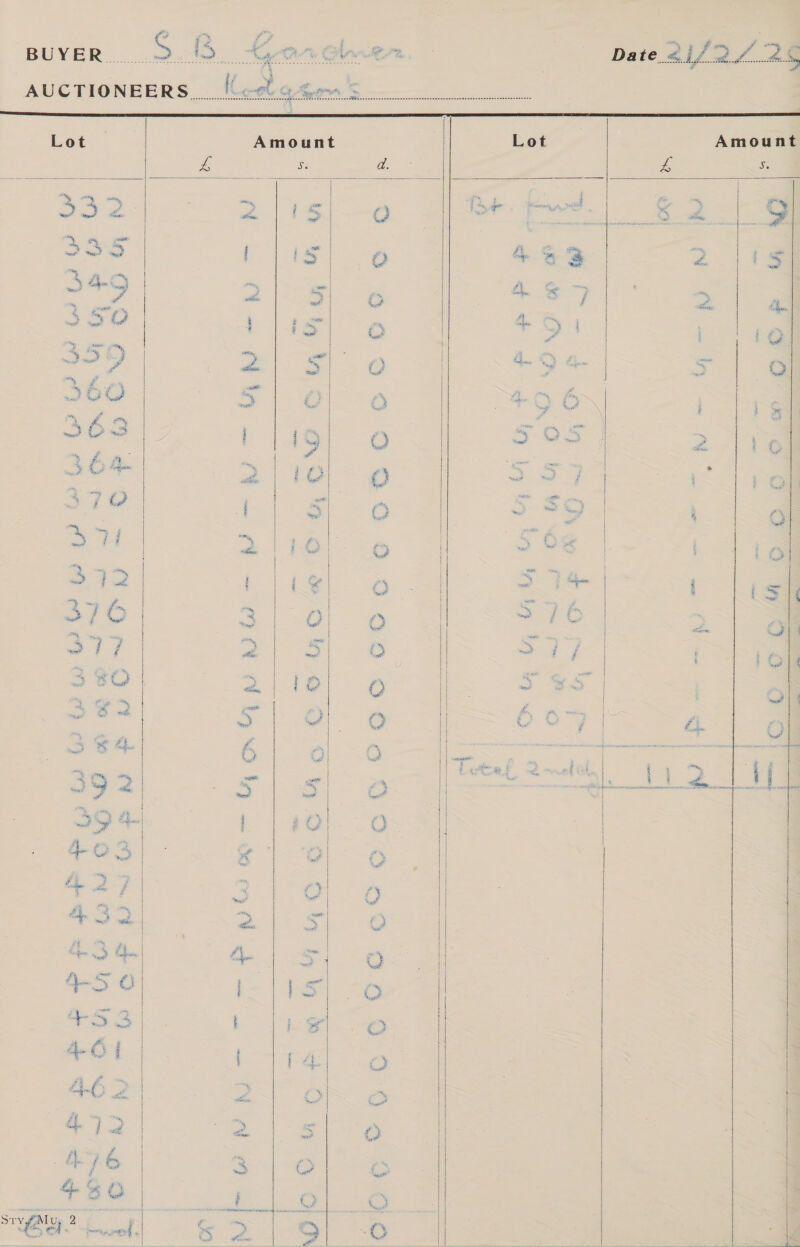 BUYER S. B. Gardner. Date 21/2/29
AUCTIONEERS Hodgson's
Lot Amount Lot Amount
£ s. d. £ s.
332 2 15 0 Bt. fwd. 82 9
335 1 15 0 483 2 15
349 2 5 0 487 2 4
350 1 15 0 491 1 10
359 2 5 0 494 5 0
360 5 0 0 496 1 18
363 1 19 0 505 2 10
364 2 10 0 557 1 10
370 1 5 0 559 1 0
371 2 10 0 568 1 10
372 1 18 0 574 1 15
376 3 0 0 576 2 0
377 2 5 0 577 1 10
380 2 10 0 585 1 0
382 5 0 0 607 4 0
384 6 0 0
392 5 5 0 Total 112 11
394 1 10 0
403 8 0 0
427 3 0 0
432 2 5 0
434 4 5 0
450 1 15 0
453 1 18 0
461 1 14 0
462 2 0 0
472 2 5 0
476 3 0 0
480 1 0 0
Sty. Mu. 2 fwd. 82 9 0